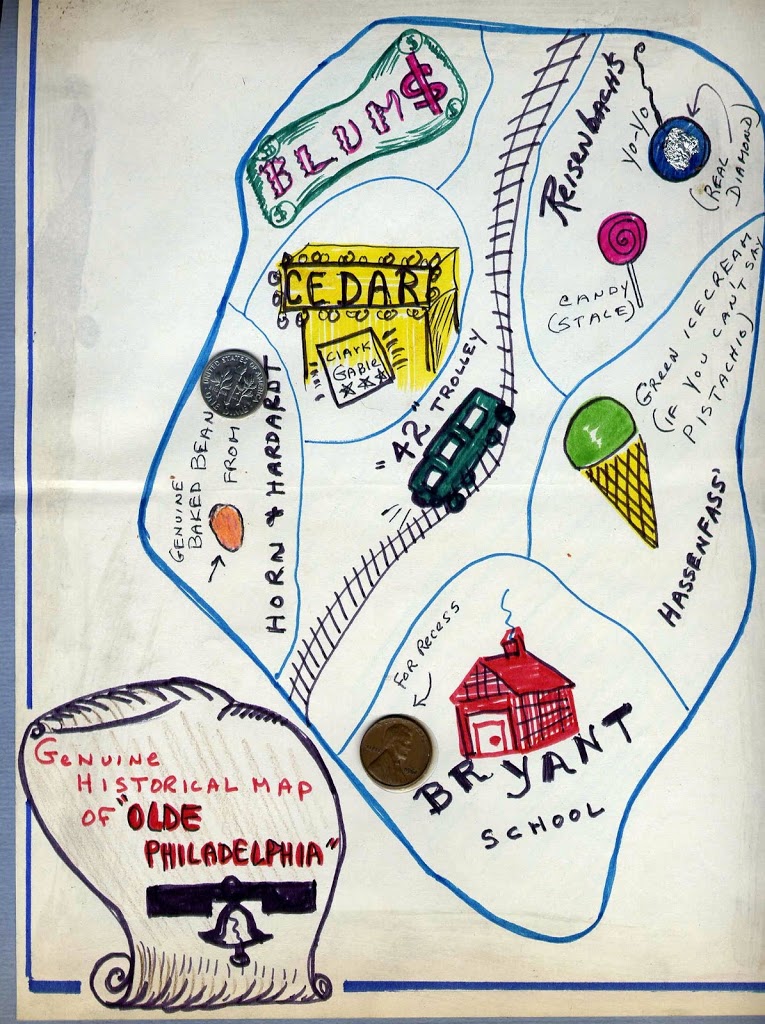 BLUM$
REISENBACH'S
YO-YO
(REAL
DIAMOND)
CANDY
(STALE)
CEDAR
CLARK
GABLE
"42" TROLLEY
GREEN ICECREAM
(IF YOU CAN'T SAY
PISTACHIO)
HASSENFASS'
GENUINE
BAKED BEAN
FROM
HORN & HARDARDT
FOR RECESS
BRYANT
SCHOOL
GENUINE
HISTORICAL MAP
OF "OLDE
PHILADELPHIA"